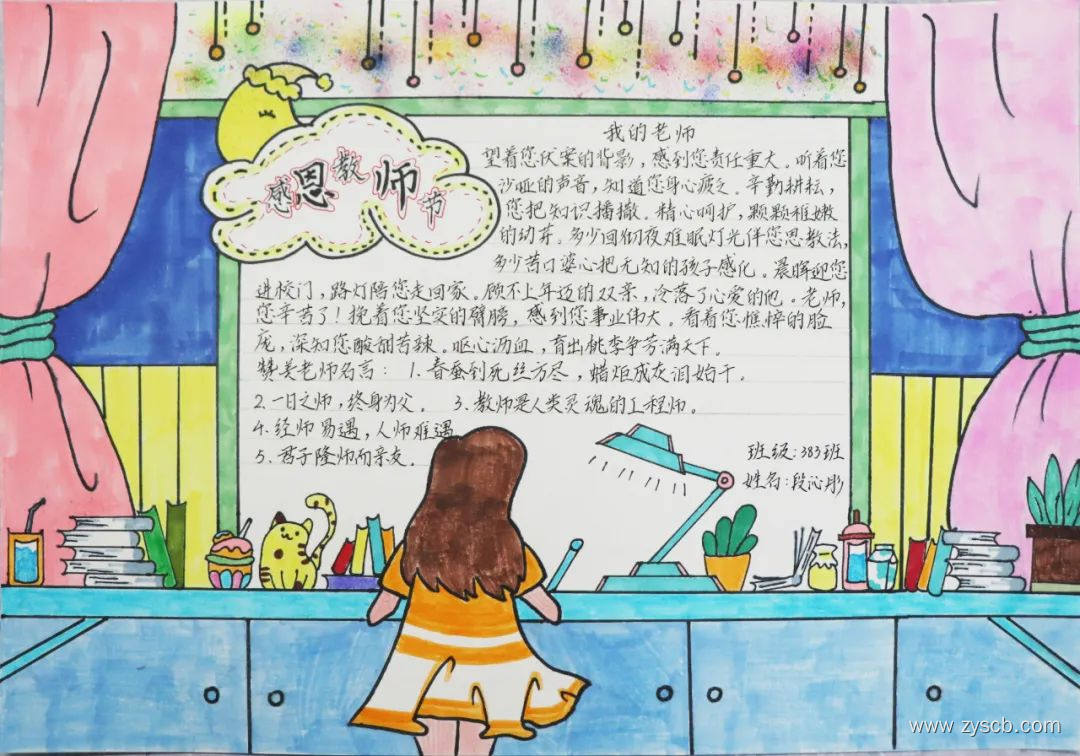 感恩教师节
我的老师
望着您伏案的背影，感到您责任重大。听着您
沙哑的声音，知道您身心疲乏。辛勤耕耘，
您把知识播撒。精心呵护，颗颗稚嫩
的幼芽。多少回彻夜难眠灯光伴您思教法，
多少苦口婆心把无知的孩子感化。晨晖迎您
进校门，路灯陪您走回家。顾不上年迈的双亲，冷落了心爱的他。老师，
您辛苦了！挽着您坚实的臂膀，感到您事业伟大。看着您憔悴的脸
庞，深知您酸甜苦辣。呕心沥血，育出桃李争芳满天下。
赞美老师名言： 1.春蚕到死丝方尽，蜡炬成灰泪始干。
2.一日之师，终身为父。 3.教师是人类灵魂的工程师。
4.经师易遇，人师难遇
5.君子隆师而亲友.
班级：383班
姓名：段沁彤
www.zyscb.com